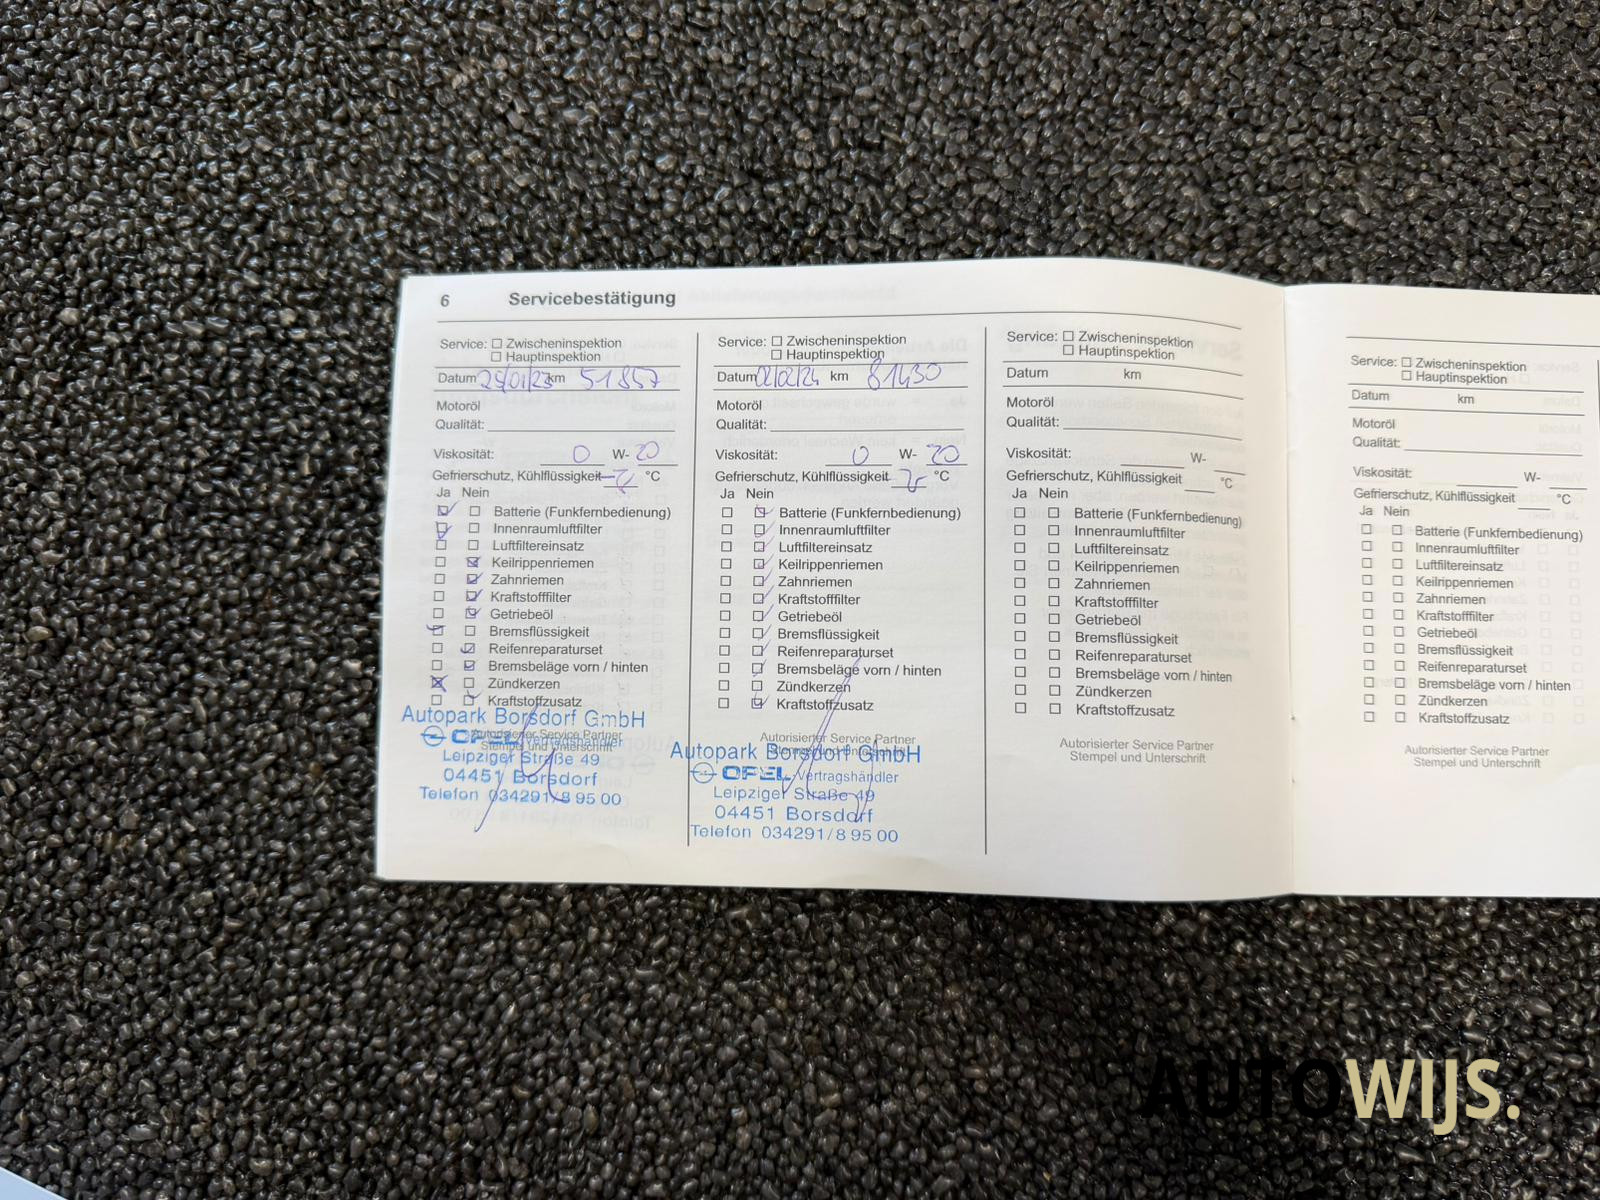 6 Servicebestätigung
Service: Zwischeninspektion
Hauptinspektion
Datum 25/01/23 km 51857
Motoröl
Qualität:
Viskosität: 0 W- 20
Gefrierschutz, Kühlflüssigkeit °C
Ja Nein
Batterie (Funkfernbedienung)
Innenraumluftfilter
Luftfiltereinsatz
Keilrippenriemen
Zahnriemen
Kraftstofffilter
Getriebeöl
Bremsflüssigkeit
Reifenreparaturset
Bremsbeläge vorn / hinten
Zündkerzen
Kraftstoffzusatz
Autorisierter Service Partner
Stempel und Unterschrift
Autopark Borsdorf GmbH
OPEL Vertragshändler
Leipziger Straße 49
04451 Borsdorf
Telefon 034291/8 95 00
Service: Zwischeninspektion
Hauptinspektion
Datum 02/02/24 km 81430
Motoröl
Qualität:
Viskosität: 0 W- 20
Gefrierschutz, Kühlflüssigkeit °C
Ja Nein
Batterie (Funkfernbedienung)
Innenraumluftfilter
Luftfiltereinsatz
Keilrippenriemen
Zahnriemen
Kraftstofffilter
Getriebeöl
Bremsflüssigkeit
Reifenreparaturset
Bremsbeläge vorn / hinten
Zündkerzen
Kraftstoffzusatz
Autorisierter Service Partner
Stempel und Unterschrift
Autopark Borsdorf GmbH
OPEL-Vertragshändler
Leipziger Straße 49
04451 Borsdorf
Telefon 034291/8 95 00
Service: Zwischeninspektion
Hauptinspektion
Datum km
Motoröl
Qualität:
Viskosität: W-
Gefrierschutz, Kühlflüssigkeit °C
Ja Nein
Batterie (Funkfernbedienung)
Innenraumluftfilter
Luftfiltereinsatz
Keilrippenriemen
Zahnriemen
Kraftstofffilter
Getriebeöl
Bremsflüssigkeit
Reifenreparaturset
Bremsbeläge vorn / hinten
Zündkerzen
Kraftstoffzusatz
Autorisierter Service Partner
Stempel und Unterschrift
Service: Zwischeninspektion
Hauptinspektion
Datum km
Motoröl
Qualität:
Viskosität: W-
Gefrierschutz, Kühlflüssigkeit °C
Ja Nein
Batterie (Funkfernbedienung)
Innenraumluftfilter
Luftfiltereinsatz
Keilrippenriemen
Zahnriemen
Kraftstofffilter
Getriebeöl
Bremsflüssigkeit
Reifenreparaturset
Bremsbeläge vorn / hinten
Zündkerzen
Kraftstoffzusatz
Autorisierter Service Partner
Stempel und Unterschrift
AUTOWIJS.